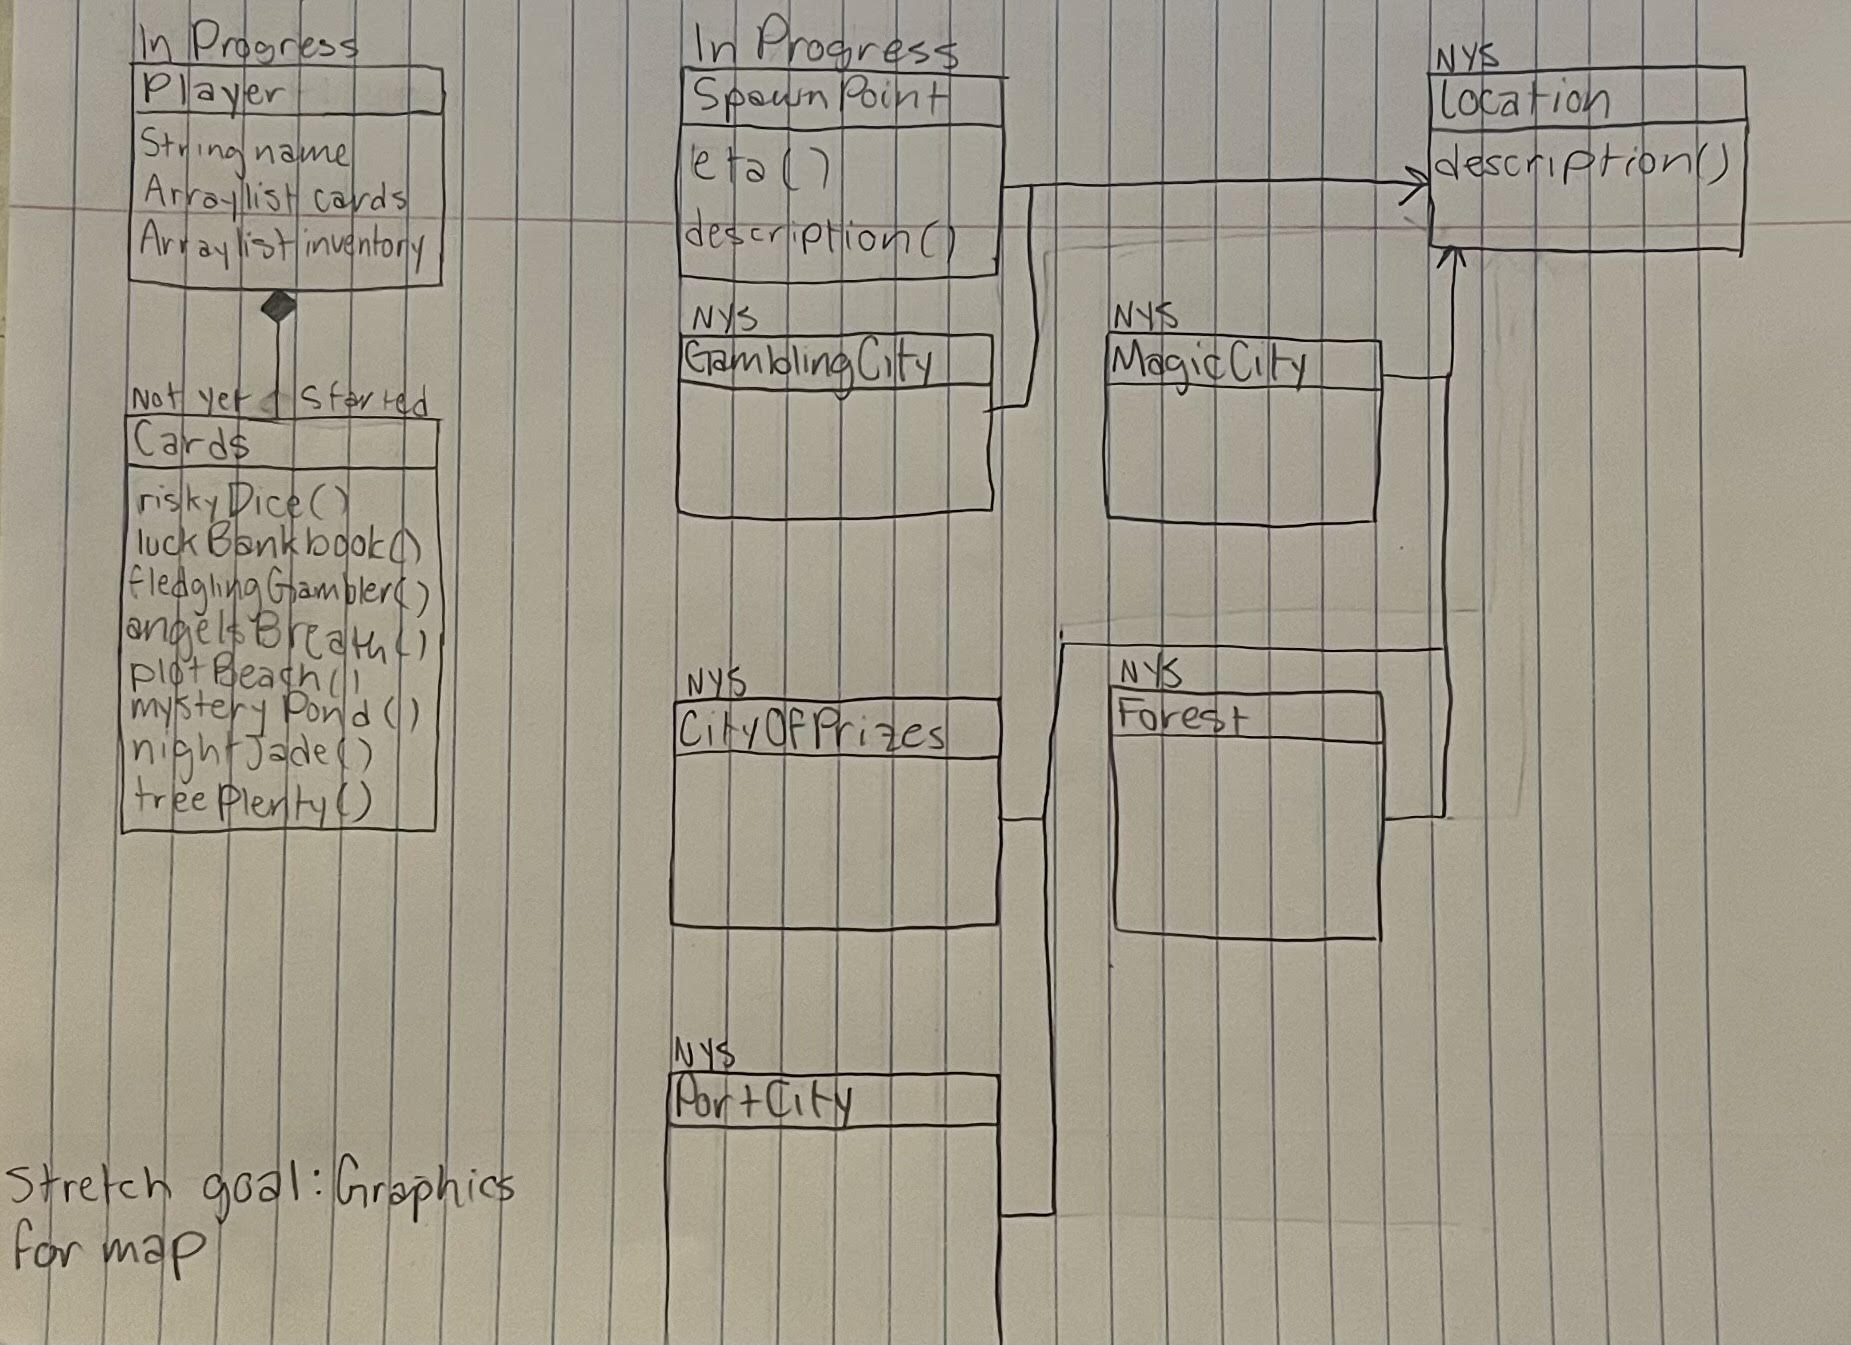 In Progress
Player
String name
Arraylist cards
Arraylist inventory
Not yet Started
Cards
riskyDice()
luckBankbook()
fledglingGambler()
angelsBreath()
plotBeach()
mysteryPond()
nightJade()
treePlenty()
Stretch goal: Graphics
for map
In Progress
SpawnPoint
eta()
description()
NYS
GamblingCity
NYS
CityOfPrizes
NYS
PortCity
NYS
MagicCity
NYS
Forest
NYS
Location
description()